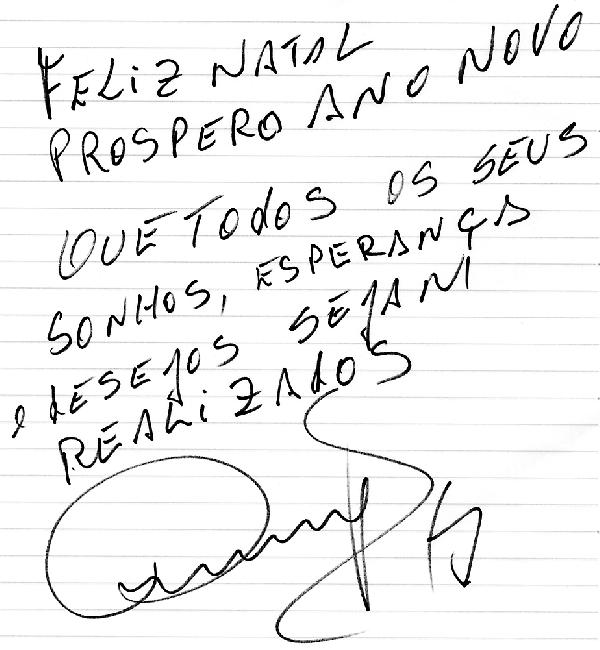 FELIZ NATAL
PROSPERO ANO NOVO
QUE TODOS OS SEUS
SONHOS, ESPERANÇA
e DESEJOS SEJAM
REALIZADOS